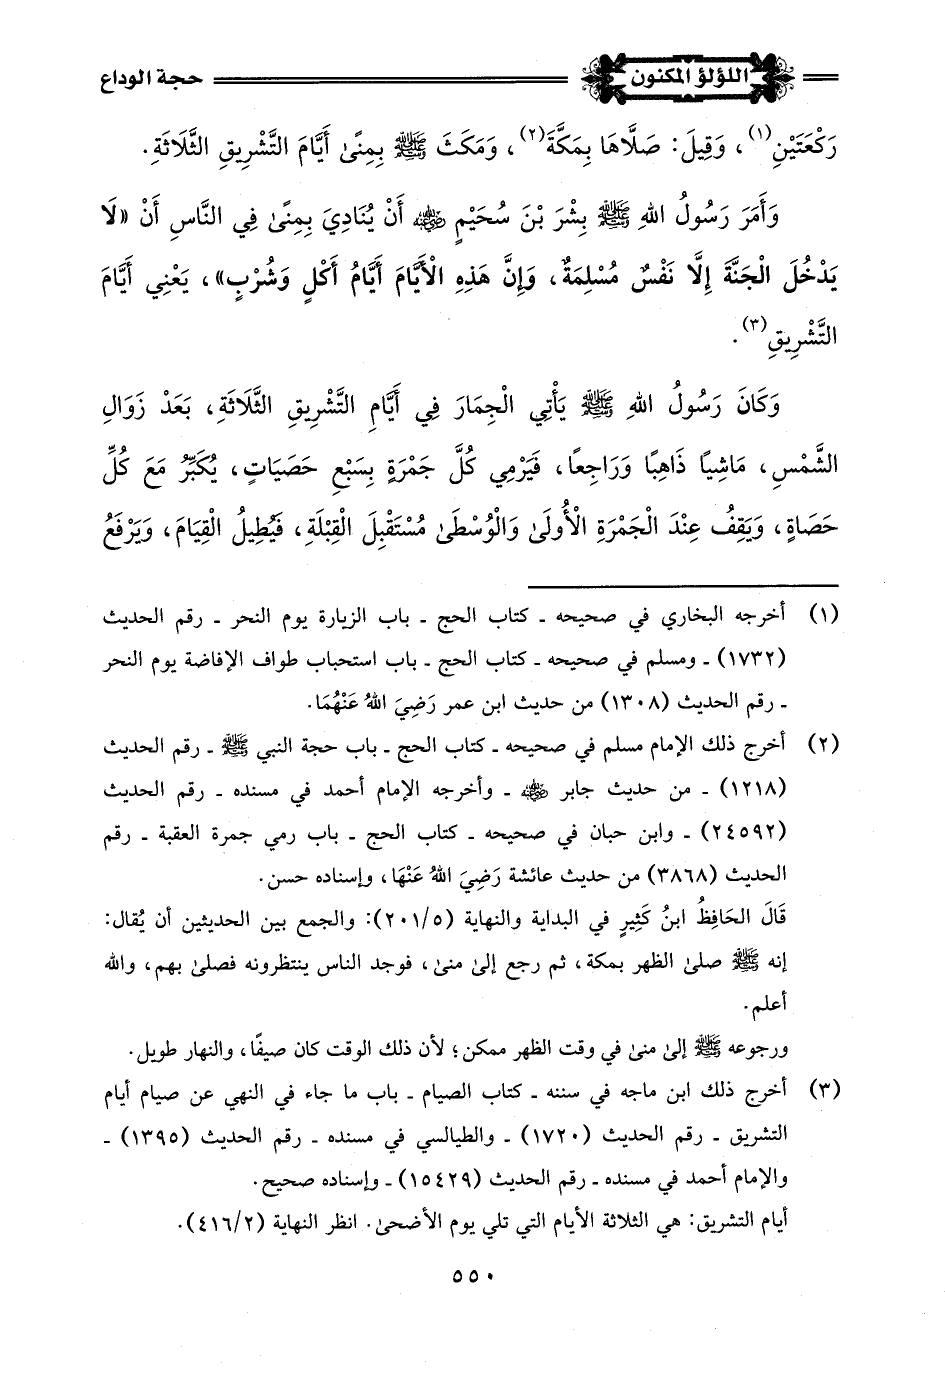 اللؤلؤ المكنون
حجة الوداع
رَكْعَتَيْنِ(١)، وَقِيلَ: صَلَّاهَا بِمَكَّةَ(٢)، وَمَكَثَ ﷺ بِمِنًىٰ أَيَّامَ التَّشْرِيقِ الثَّلَاثَةِ.
وَأَمَرَ رَسُولُ اللهِ ﷺ بِشْرَ بْنَ سُحَيْمٍ رضي الله عنه أَنْ يُنَادِيَ بِمِنًىٰ فِي النَّاسِ أَنْ «لَا
يَدْخُلَ الْجَنَّةَ إِلَّا نَفْسٌ مُسْلِمَةٌ، وَإِنَّ هَذِهِ الْأَيَّامَ أَيَّامُ أَكْلٍ وَشُرْبٍ»، يَعْنِي أَيَّامَ
التَّشْرِيقِ(٣).
وَكَانَ رَسُولُ اللهِ ﷺ يَأْتِي الْجِمَارَ فِي أَيَّامِ التَّشْرِيقِ الثَّلَاثَةِ، بَعْدَ زَوَالِ
الشَّمْسِ، مَاشِيًا ذَاهِبًا وَرَاجِعًا، فَيَرْمِي كُلَّ جَمْرَةٍ بِسَبْعِ حَصَيَاتٍ، يُكَبِّرُ مَعَ كُلِّ
حَصَاةٍ، وَيَقِفُ عِنْدَ الْجَمْرَةِ الْأُولَىٰ وَالْوُسْطَىٰ مُسْتَقْبِلَ الْقِبْلَةِ، فَيُطِيلُ الْقِيَامَ، وَيَرْفَعُ
(١) أخرجه البخاري في صحيحه ـ كتاب الحج ـ باب الزيارة يوم النحر ـ رقم الحديث
(١٧٣٢) ـ ومسلم في صحيحه ـ كتاب الحج ـ باب استحباب طواف الإفاضة يوم النحر
ـ رقم الحديث (١٣٠٨) من حديث ابن عمر رَضِيَ اللهُ عَنْهُمَا.
(٢) أخرج ذلك الإمام مسلم في صحيحه ـ كتاب الحج ـ باب حجة النبي ﷺ ـ رقم الحديث
(١٢١٨) ـ من حديث جابر رضي الله عنه ـ وأخرجه الإمام أحمد في مسنده ـ رقم الحديث
(٢٤٥٩٢) ـ وابن حبان في صحيحه ـ كتاب الحج ـ باب رمي جمرة العقبة ـ رقم
الحديث (٣٨٦٨) من حديث عائشة رَضِيَ اللهُ عَنْهَا، وإسناده حسن.
قَالَ الحَافِظُ ابنُ كَثِيرٍ في البداية والنهاية (٢٠١/٥): والجمع بين الحديثين أن يُقال:
إنه ﷺ صلىٰ الظهر بمكة، ثم رجع إلىٰ منىٰ، فوجد الناس ينتظرونه فصلىٰ بهم، والله
أعلم.
ورجوعه ﷺ إلىٰ منىٰ في وقت الظهر ممكن؛ لأن ذلك الوقت كان صيفًا، والنهار طويل.
(٣) أخرج ذلك ابن ماجه في سننه ـ كتاب الصيام ـ باب ما جاء في النهي عن صيام أيام
التشريق ـ رقم الحديث (١٧٢٠) ـ والطيالسي في مسنده ـ رقم الحديث (١٣٩٥) ـ
والإمام أحمد في مسنده ـ رقم الحديث (١٥٤٢٩) ـ وإسناده صحيح.
أيام التشريق: هي الثلاثة الأيام التي تلي يوم الأضحىٰ. انظر النهاية (٤١٦/٢).
٥٥٠